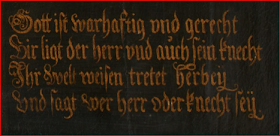 Gott ist warhaftig vnd gerecht
Hir ligt der herr vnd auch sein knecht
Ihr welt weisen tretet herbey
Vnd sagt wer herr oder knecht seÿ